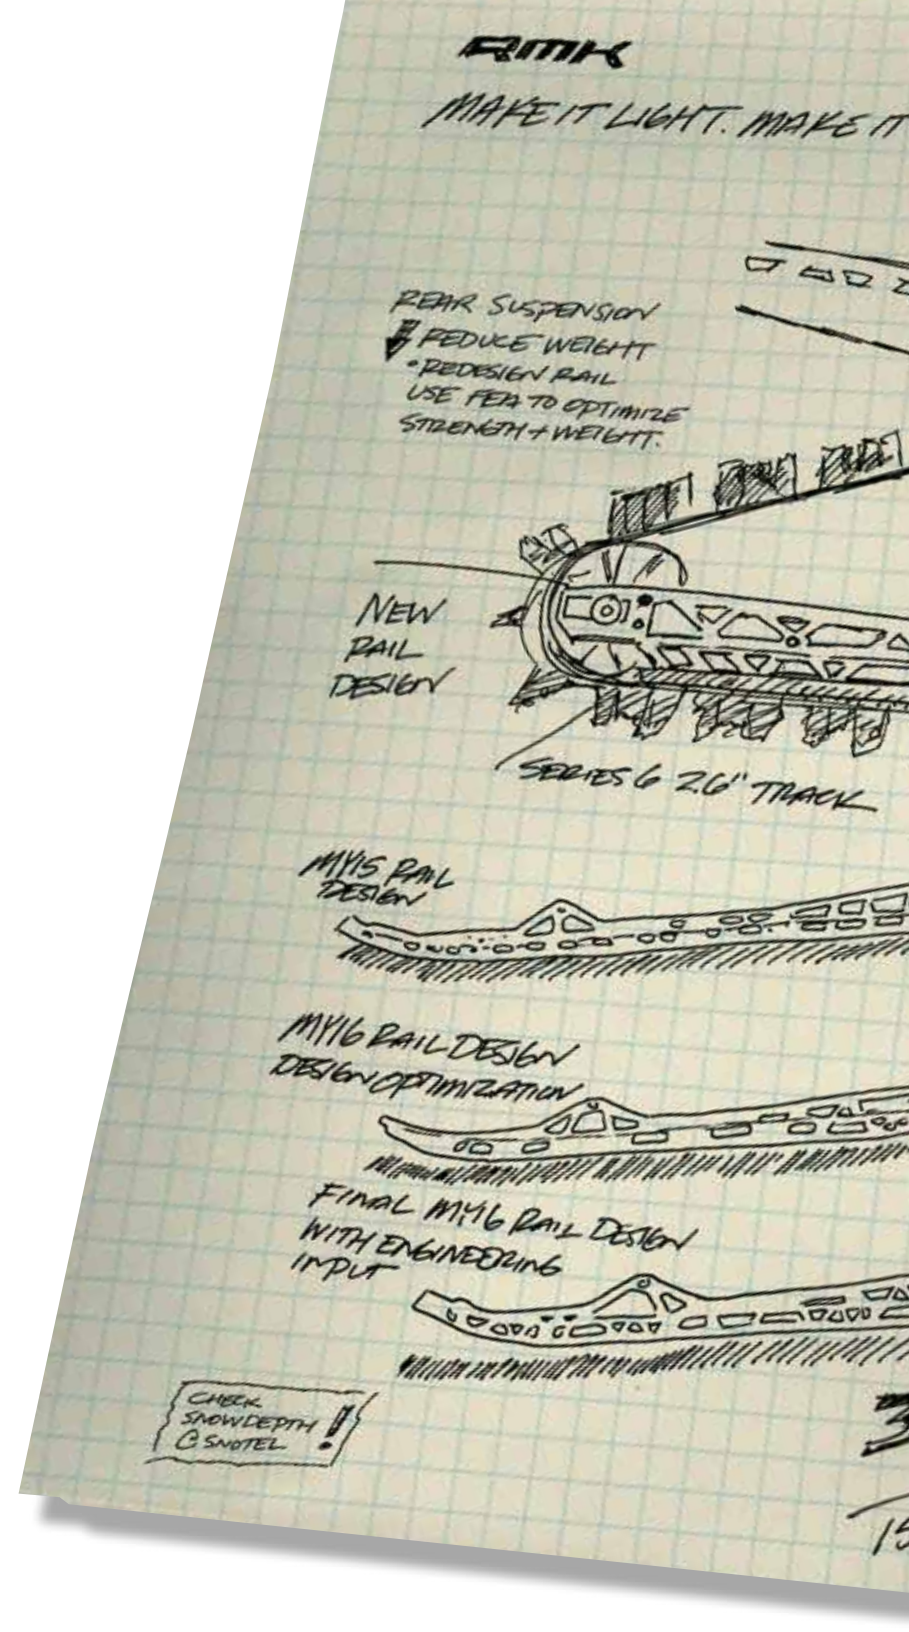 RMK
MAKE IT LIGHT. MAKE IT
REAR SUSPENSION
REDUCE WEIGHT
• REDESIGN RAIL
USE FEA TO OPTIMIZE
STRENGTH + WEIGHT.
NEW
RAIL
DESIGN
SERIES 6 2.6" TRACK
MY15 RAIL
DESIGN
MY16 RAIL DESIGN
DESIGN OPTIMIZATION
FINAL MY16 RAIL DESIGN
WITH ENGINEERING
INPUT
CHECK
SNOWDEPTH !
@ SNOTEL
3
15